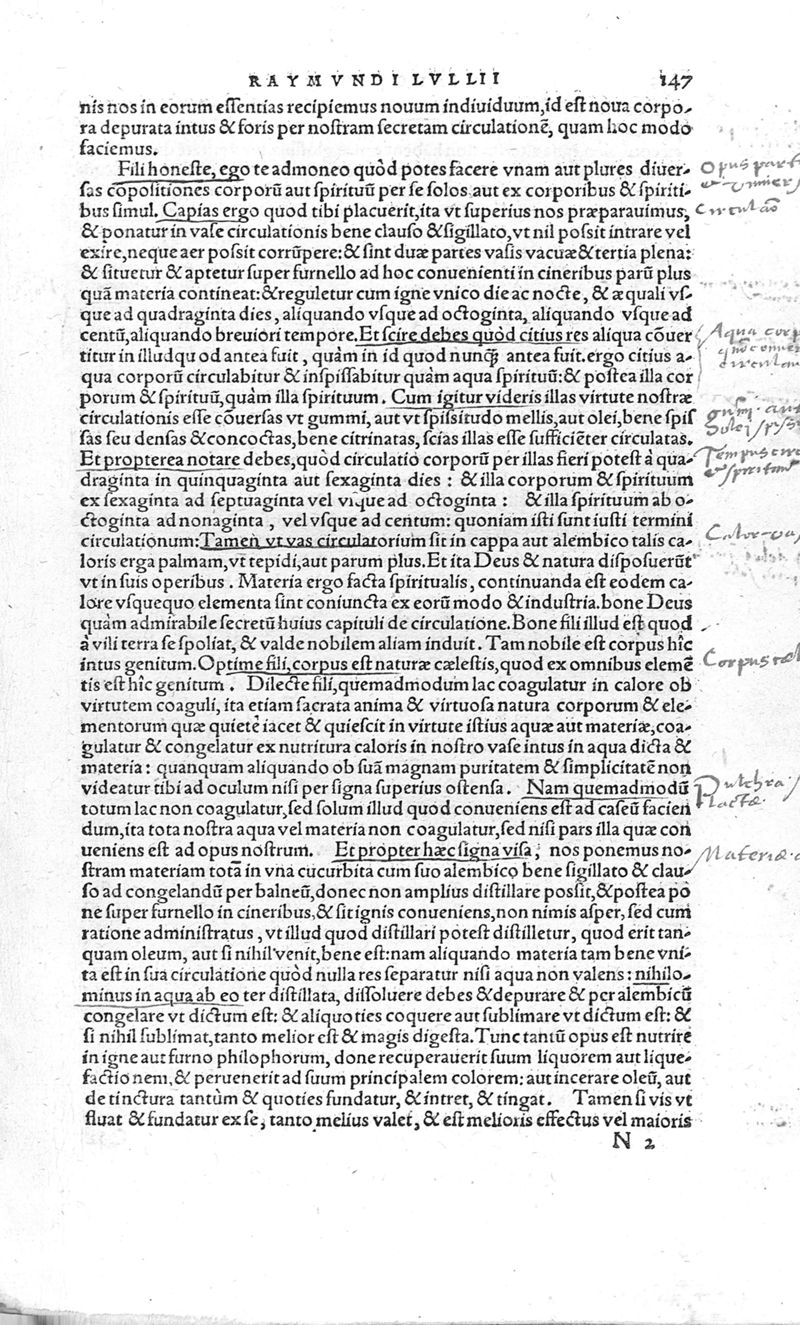 RAYMVNDI LVLLII 147
nis nos in eorum eſſentias recipiemus nouum indiuiduum, id eſt noua corpo-
ra depurata intus & foris per noſtram ſecretam circulationē, quam hoc modo
faciemus.
Fili honeſte, ego te admoneo quòd potes facere vnam aut plures diuer-
ſas cōpoſitiones corporū aut ſpirituū per ſe ſolos aut ex corporibus & ſpiriti-
bus ſimul. Capias ergo quod tibi placuerit, ita vt ſuperius nos præparauimus,
& ponatur in vaſe circulationis bene clauſo & ſigillato, vt nil poſsit intrare vel
exire, neque aer poſsit corrūpere: & ſint duæ partes vaſis vacuæ & tertia plena:
& ſituetur & aptetur ſuper furnello ad hoc conuenienti in cineribus parū plus
quā materia contineat: & reguletur cum igne vnico die ac nocte, & æquali vſ-
que ad quadraginta dies, aliquando vſque ad octoginta, aliquando vſque ad
centū, aliquando breuiori tempore. Et ſcire debes quòd citius res aliqua cōuer
titur in illud qu od antea fuit, quàm in id quod nunꝗ̃ antea fuit. ergo citius a-
qua corporū circulabitur & inſpiſſabitur quàm aqua ſpirituū: & poſtea illa cor
porum & ſpirituū, quàm illa ſpirituum. Cum igitur videris illas virtute noſtræ
circulationis eſſe cōuerſas vt gummi, aut vt ſpiſsitudo mellis, aut olei, bene ſpiſ
ſas ſeu denſas & concoctas, bene citrinatas, ſcias illas eſſe ſufficiēter circulatas.
Et propterea notare debes, quòd circulatio corporū per illas fieri poteſt à qua-
draginta in quinquaginta aut ſexaginta dies: & illa corporum & ſpirituum
ex ſexaginta ad ſeptuaginta vel vſque ad octoginta: & illa ſpirituum ab o-
ctoginta ad nonaginta, vel vſque ad centum: quoniam iſti ſunt iuſti termini
circulationum: Tamen vt vas circulatorium ſit in cappa aut alembico talis ca-
loris erga palmam, vt tepidi, aut parum plus. Et ita Deus & natura diſpoſuerūt
vt in ſuis operibus. Materia ergo facta ſpiritualis, continuanda eſt eodem ca-
lore vſquequo elementa ſint coniuncta ex eorū modo & induſtria. bone Deus
quàm admirabile ſecretū huius capituli de circulatione. Bone fili illud eſt quod
à vili terra ſe ſpoliat, & valde nobilem aliam induit. Tam nobile eſt corpus hîc
intus genitum. Optime fili, corpus eſt naturæ cæleſtis, quod ex omnibus elemē
tis eſt hîc genitum. Dilecte fili, quemadmodum lac coagulatur in calore ob
virtutem coaguli, ita etiam ſacrata anima & virtuoſa natura corporum & ele-
mentorum quæ quietè iacet & quieſcit in virtute iſtius aquæ aut materiæ, coa-
gulatur & congelatur ex nutritura caloris in noſtro vaſe intus in aqua dicta &
materia: quanquam aliquando ob ſuā magnam puritatem & ſimplicitatē non
videatur tibi ad oculum niſi per ſigna ſuperius oſtenſa. Nam quemadmodū
totum lac non coagulatur, ſed ſolum illud quod conueniens eſt ad caſeū facien
dum, ita tota noſtra aqua vel materia non coagulatur, ſed niſi pars illa quæ con
ueniens eſt ad opus noſtrum. Et propter hæc ſigna viſa, nos ponemus no-
ſtram materiam totā in vna cucurbita cum ſuo alembico bene ſigillato & clau-
ſo ad congelandū per balneū, donec non amplius diſtillare poſsit, & poſtea pō
ne ſuper furnello in cineribus, & ſit ignis conueniens, non nimis aſper, ſed cum
ratione adminiſtratus, vt illud quod diſtillari poteſt diſtilletur, quod erit tan-
quam oleum, aut ſi nihil venit, bene eſt: nam aliquando materia tam bene vni-
ta eſt in ſua circulatione quòd nulla res ſeparatur niſi aqua non valens: nihilo-
minus in aqua ab eo ter diſtillata, diſſoluere debes & depurare & per alembicū
congelare vt dictum eſt: & aliquoties coquere aut ſublimare vt dictum eſt: &
ſi nihil ſublimat, tanto melior eſt & magis digeſta. Tunc tantū opus eſt nutrire
in igne aut furno philophorum, done recuperauerit ſuum liquorem aut lique-
factio nem, & peruenerit ad ſuum principalem colorem: aut incerare oleū, aut
de tinctura tantùm & quoties fundatur, & intret, & tingat. Tamen ſi vis vt
fluat & fundatur ex ſe, tanto melius valet, & eſt melioris effectus vel maioris
N 2
Opus
Circulaō
Aqua corp
circulan
gum̄i
Tempus circ
Calor
Corpus cæl
Pulchra
Materiæ